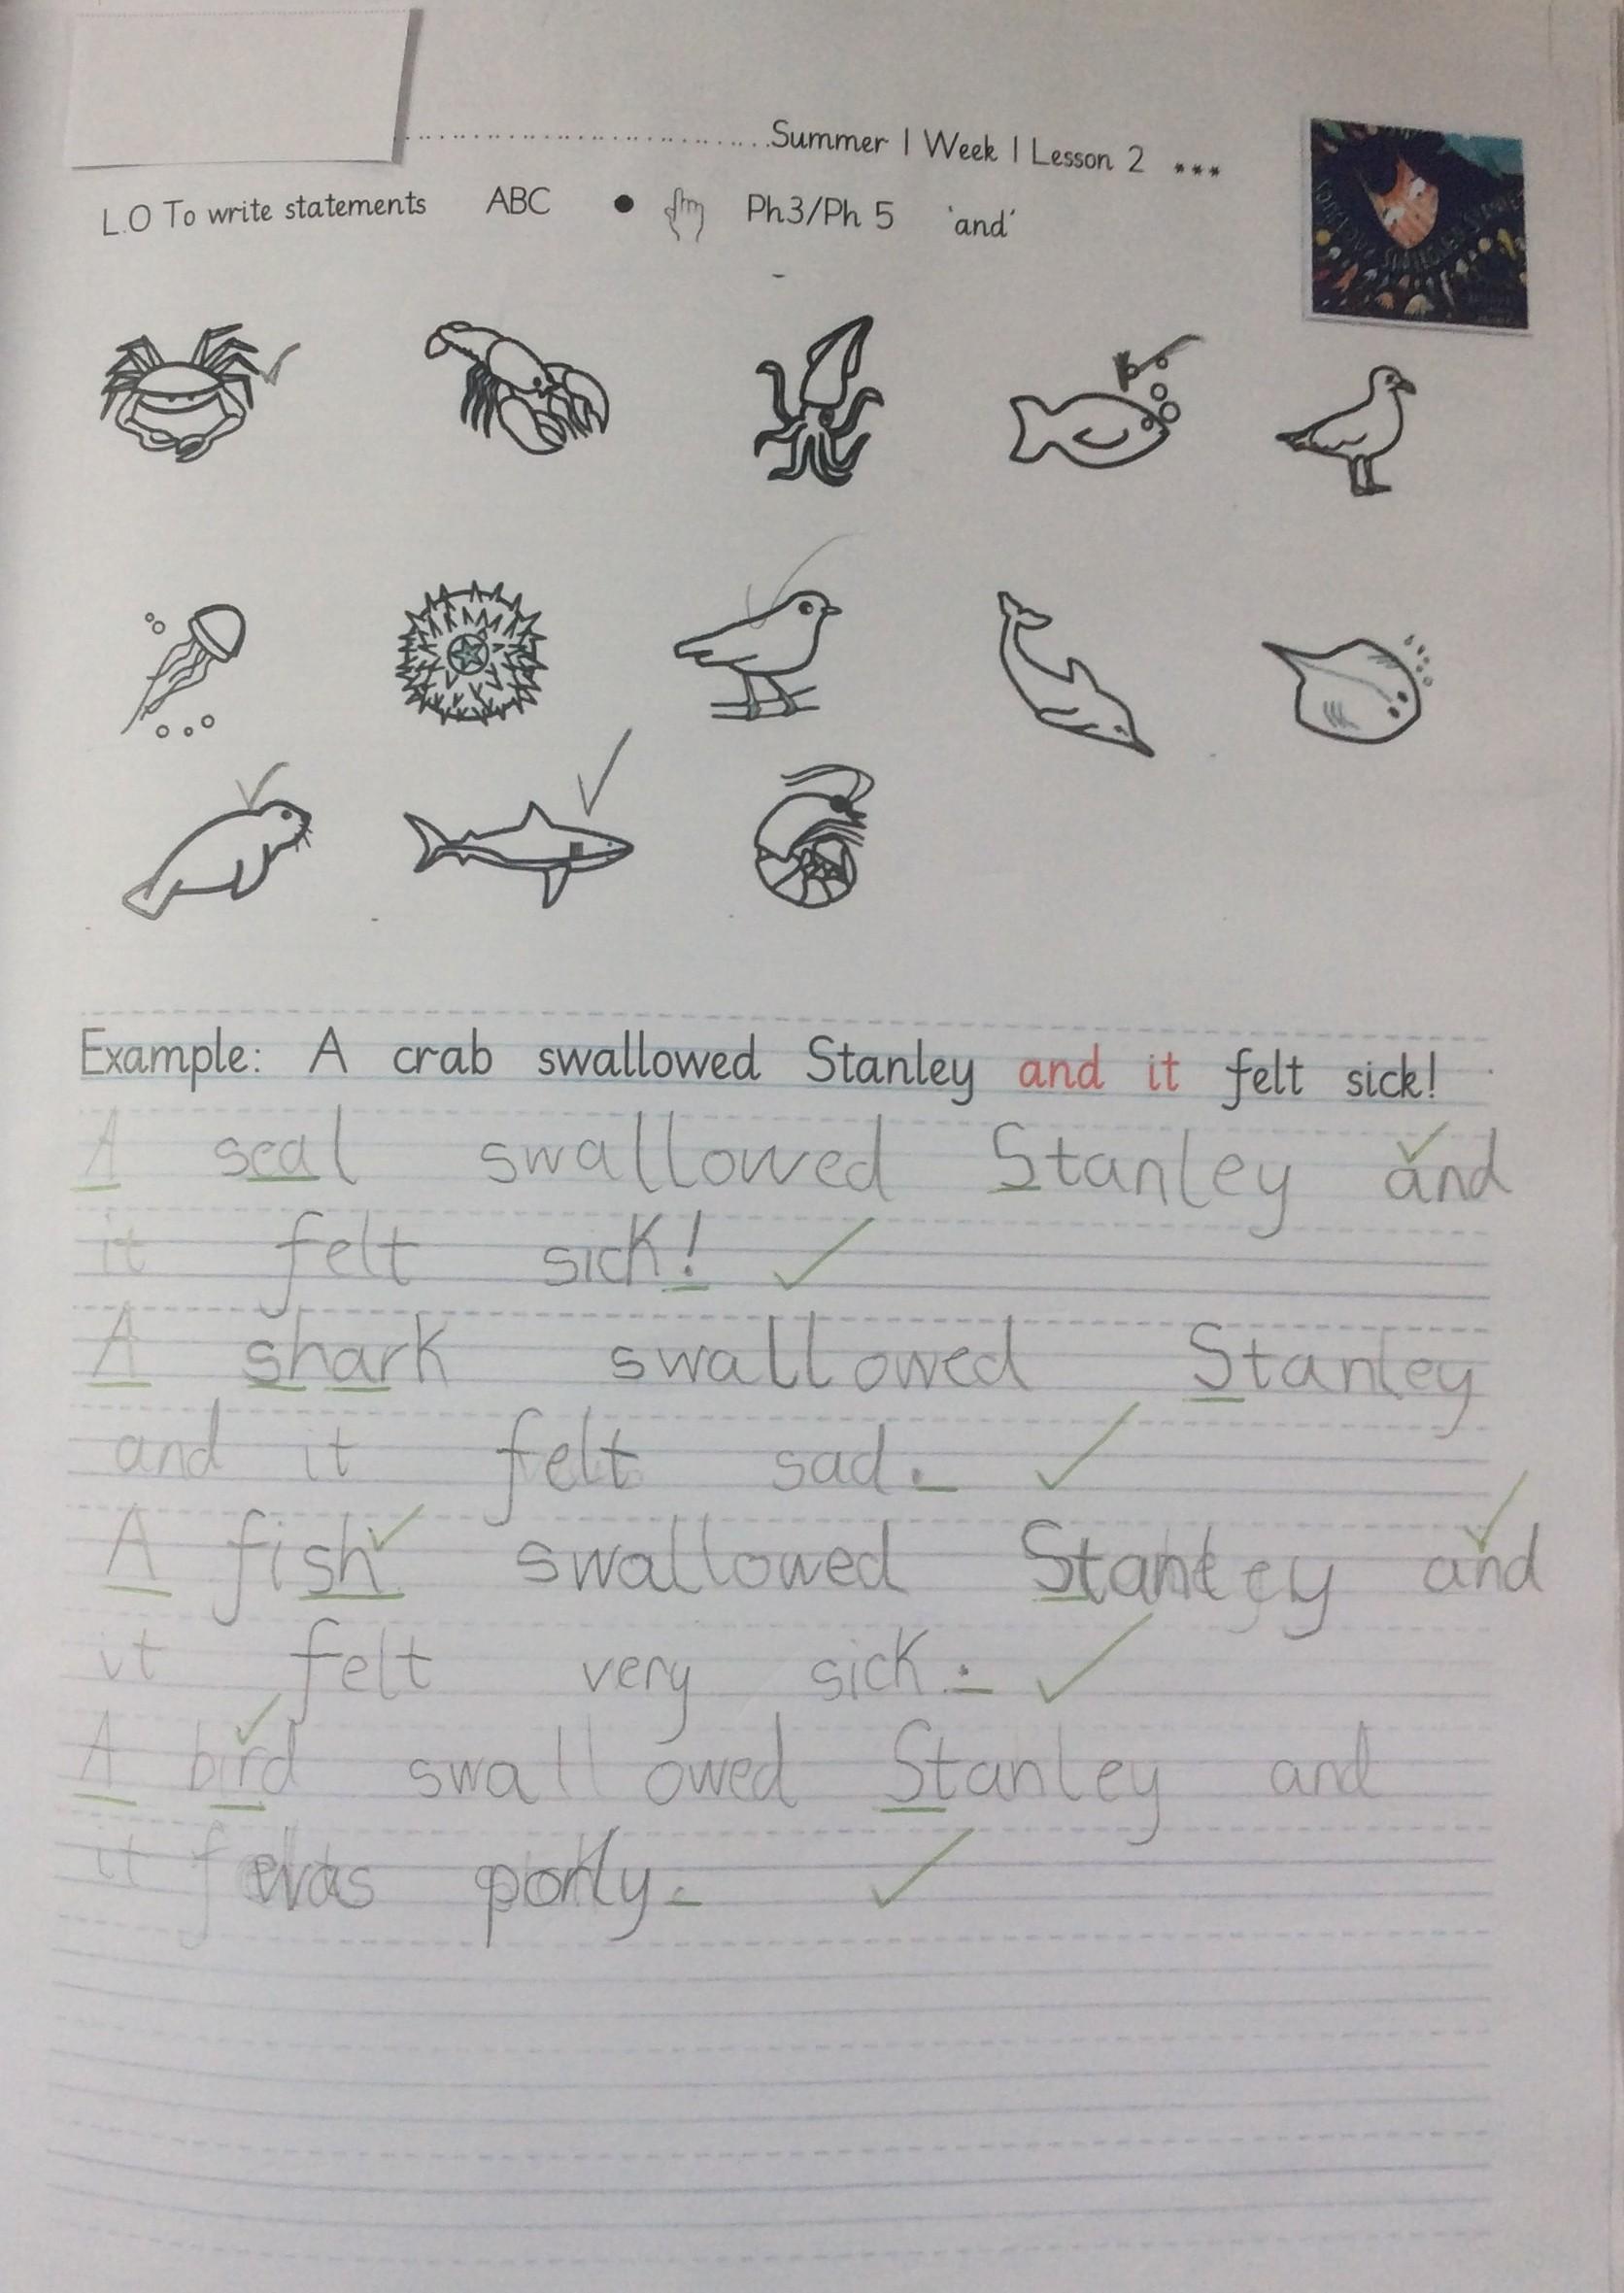 Summer 1 Week 1 Lesson 2 ***
L.O To write statements ABC ● Ph3/Ph 5 'and'
Example: A crab swallowed Stanley and it felt sick!
A seal swallowed Stanley and
it felt sick!
A shark swallowed Stanley
and it felt sad.
A fish swallowed Stanley and
it felt very sick.
A bird swallowed Stanley and
it was